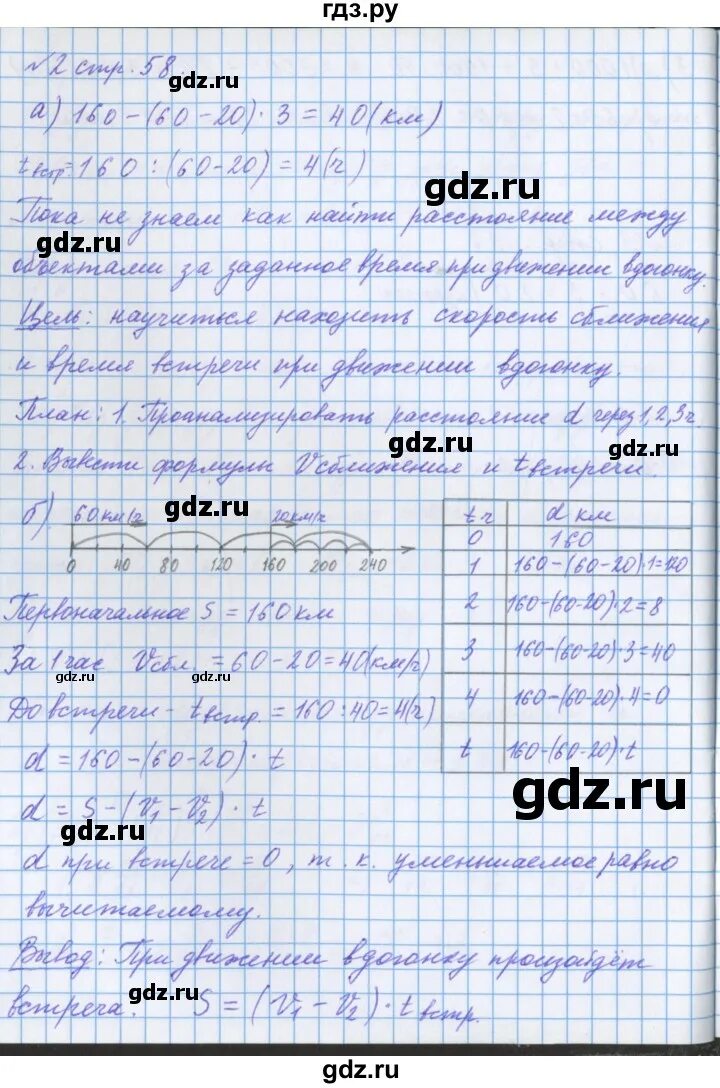 гдз.ру
№2 стр. 58
gdz.ru
а) 160-(60-20)·3=40(км)
tвстр.=160:(60-20)=4(ч)
gdz.ru
Пока не знаем как найти расстояние между
gdz.ru
объектами за заданное время при движении вдогонку.
Цель: научиться находить скорость сближения
и время встречи при движении вдогонку.
План: 1. Проанализировать расстояние d через 1,2,3ч.
gdz.ru
2. Вывести формулы Vсближения и tвстречи.
gdz.ru
б) 60км/ч 20км/ч
0 40 80 120 160 200 240
t ч d км
0 160
1 160-(60-20)·1=120
2 160-(60-20)·2=8
3 160-(60-20)·3=40
4 160-(60-20)·4=0
t 160-(60-20)·t
Первоначальное S=160км
За 1 час Vсбл.=60-20=40(км/ч)
gdz.ru
gdz.ru
До встречи - tвстр.=160:40=4(ч)
d=160-(60-20)·t
gdz.ru
d=S-(v₁-v₂)·t
gdz.ru
d при встрече=0, т.к. уменьшаемое равно
вычитаемому.
Вывод: При движении вдогонку произойдёт
gdz.ru
встреча. S=(v₁-v₂)·tвстр.
gdz.ru